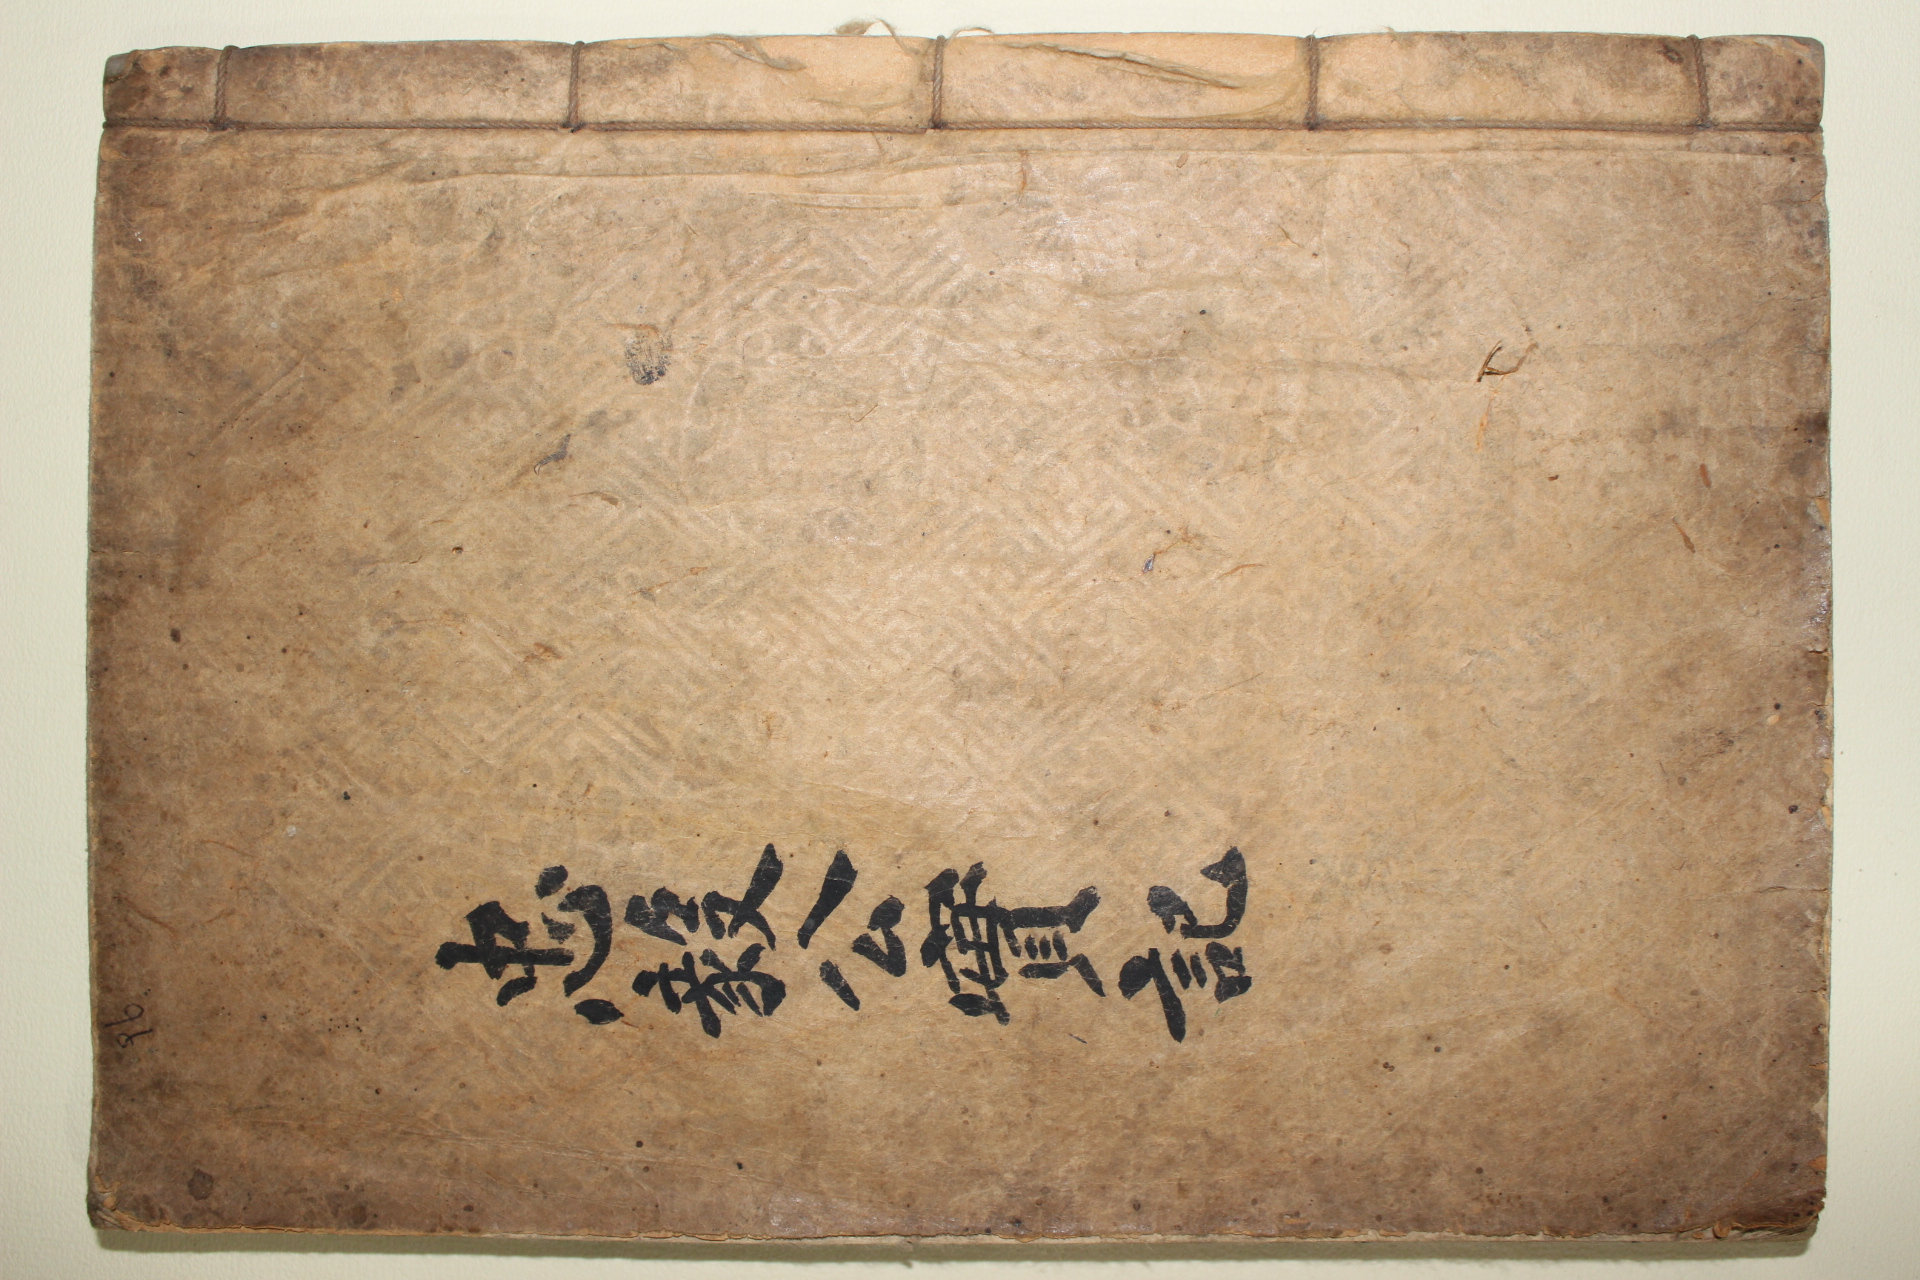 忠毅公實記